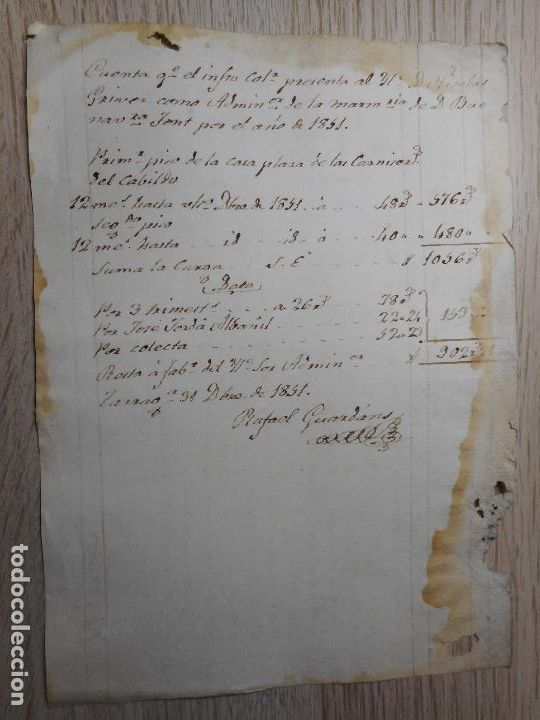 Cuenta qe. el infro Colr. presenta al Ile. D. Nicolas
Griver como Adminor. de la marmria. de D. Bue
navra. Font por el año de 1851.
Primr. piso de la casa plaza de las Carniserias
del Cabildo
12 mess. hasta ulto. Dbre de 1851 à 48 rs 576 rs
Sego.do piso
12 ms. hasta id id à 40 " 480 "
Suma la Carga S. E. 1056 rs
Data
Por 3 trimest. a 26 rs 78 rs
Por Jose Jordá Albañil 22 " 24
Por colecta 52 " 23 153
Resta á fabr. del Ile. Sor Adminor. 902
Tarraga. 31 Dbre de 1851.
Rafael Guardáns
todocoleccion